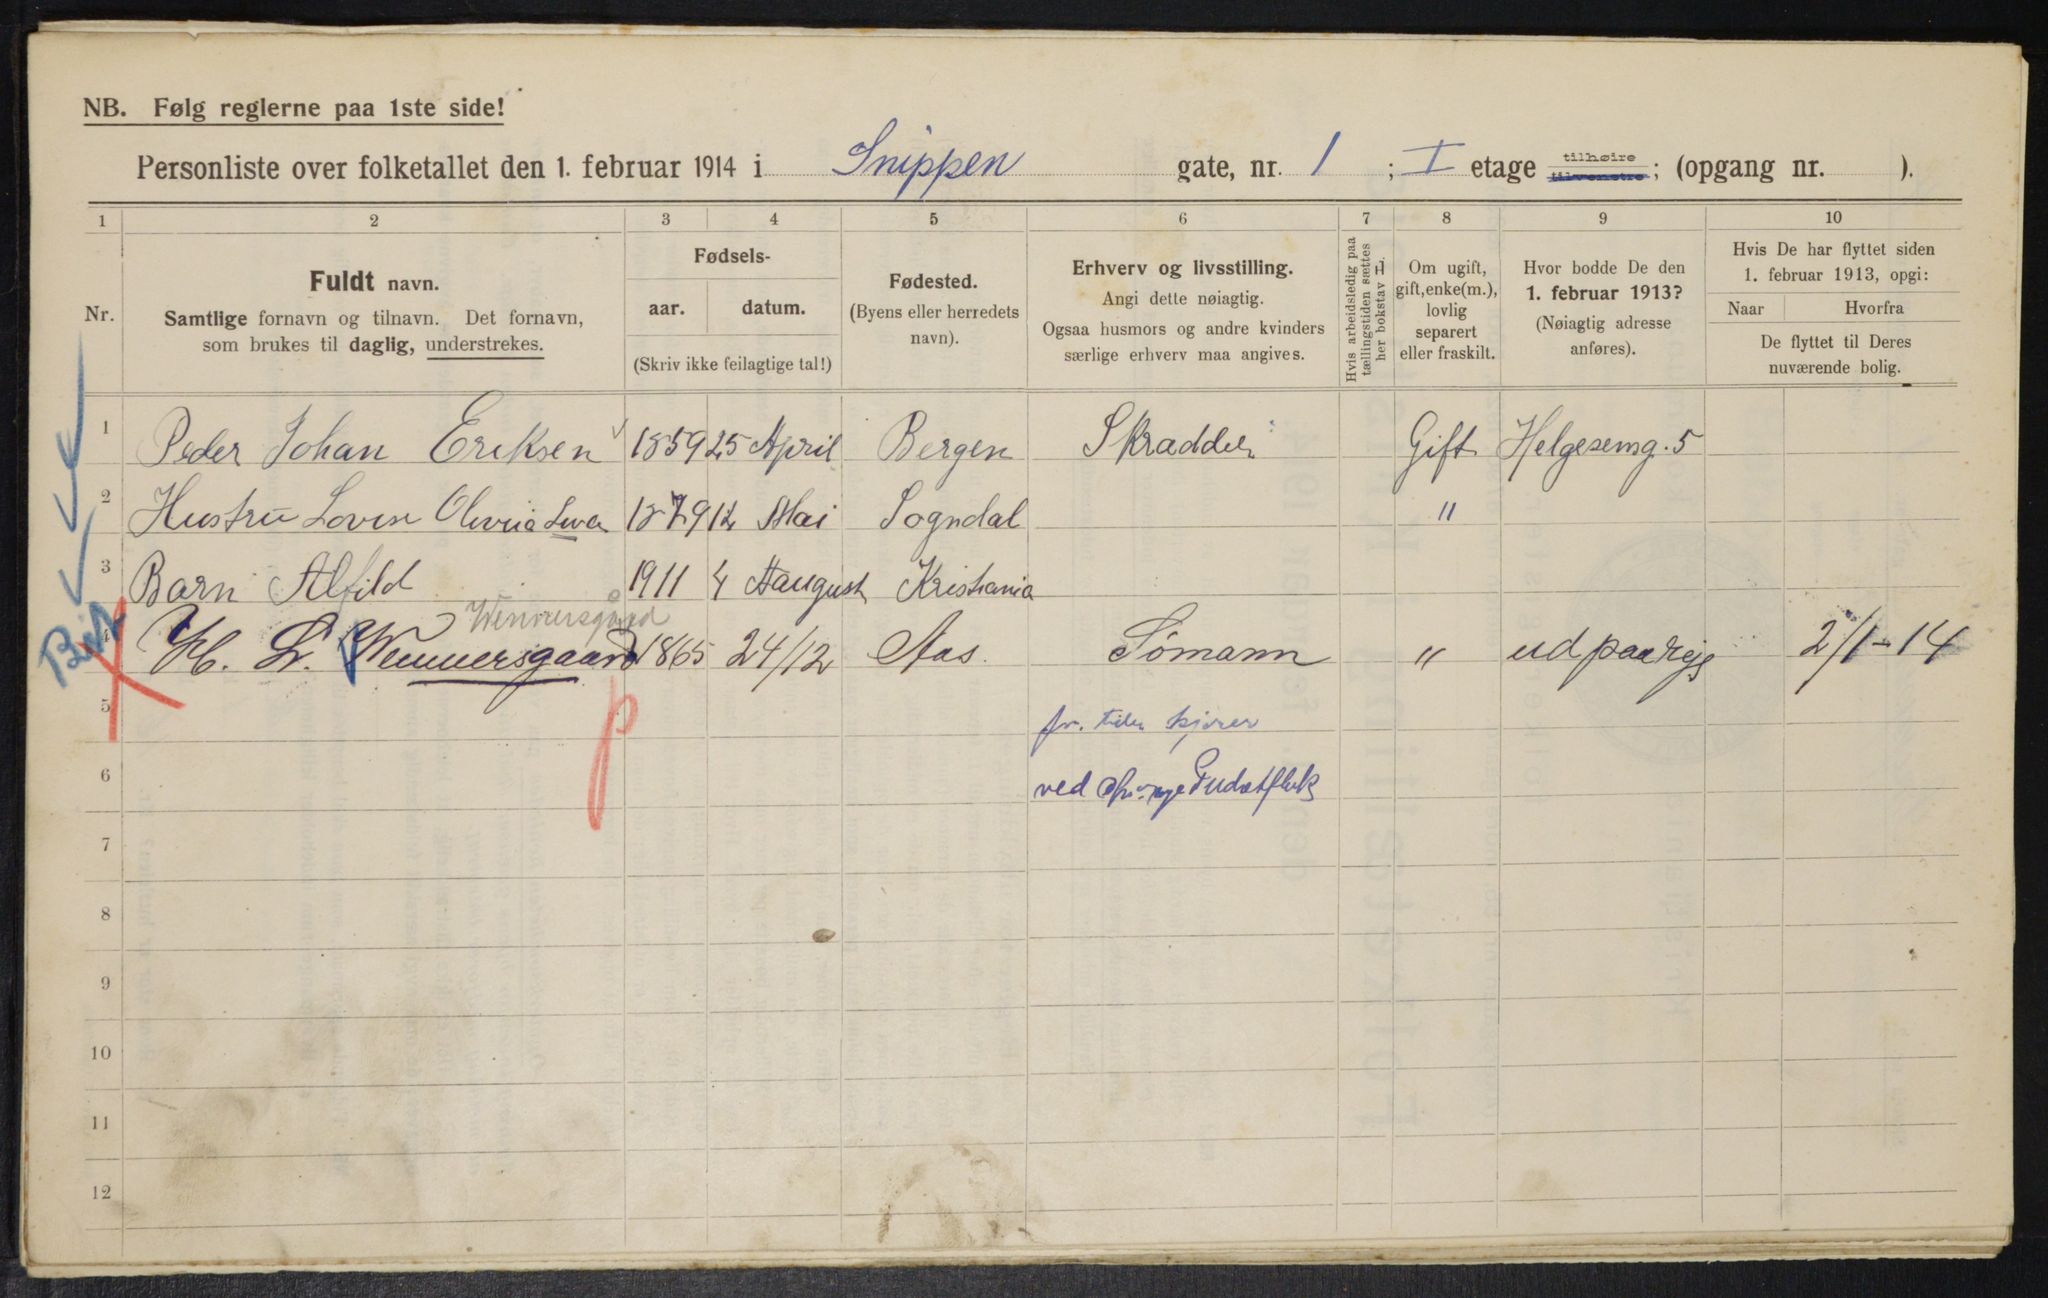 NB. Følg reglerne paa 1ste side!
Personliste over folketallet den 1. februar 1914 i Snippen gate, nr. 1 ; I etage tilhøire tilvenstre ; (opgang nr. ).
1 2 3 4 5 6 7 8 9 10
Nr.
Fuldt navn.
Samtlige fornavn og tilnavn. Det fornavn,
som brukes til daglig, understrekes.
Fødsels-
aar. datum.
(Skriv ikke feilagtige tal!)
Fødested.
(Byens eller herredets
navn).
Erhverv og livsstilling.
Angi dette nøiagtig.
Ogsaa husmors og andre kvinders
særlige erhverv maa angives.
Hvis arbeidsledig paa
tællingstiden sættes
her bokstav
Om ugift,
gift, enke(m.),
lovlig
separert
eller fraskilt.
Hvor bodde De den
1. februar 1913?
(Nøiagtig adresse
anføres).
Hvis De har flyttet siden
1. februar 1913, opgi:
Naar Hvorfra
De flyttet til Deres
nuværende bolig.
1 Peder Johan Eriksen 1859 25 April Bergen Skrædder Gift Helgesensg. 5
2 Hustru Lovise Olivia 1879 12 Mai Sogndal "
3 Barn Alfild 1911 4 Aaugust Kristiania
Wennersgård
4 H. L. Wennersgaard 1865 24/12 Aas Sømann " ud paa rejs 2/1-14
5 for tiden kjører
6 ved
7
8
9
10
11
12